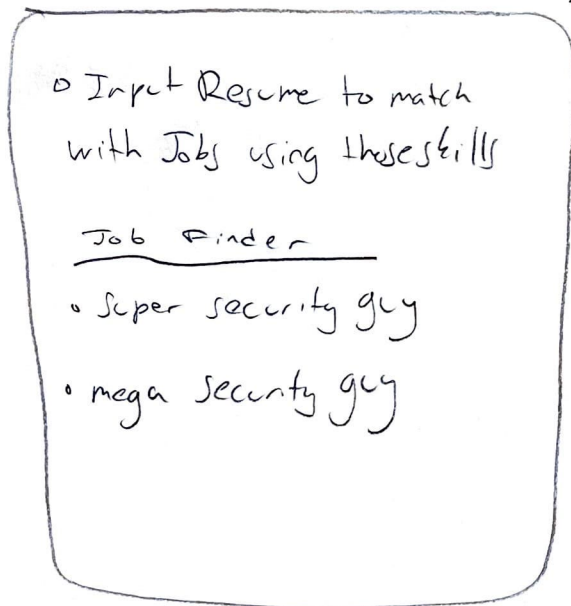 o Input Resume to match
with Jobs using those skills
Job Finder
• Super security guy
• mega security guy